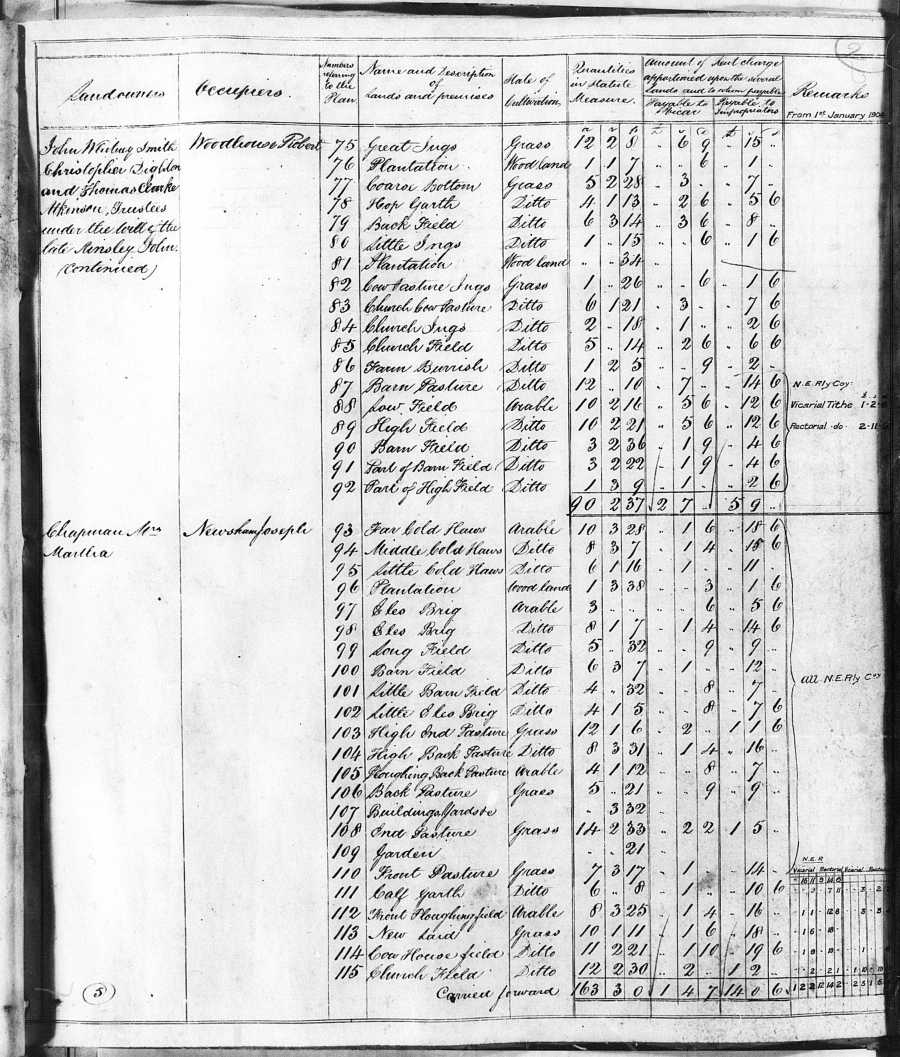 Landowners Occupiers. Numbers referring to the Plan Name and Description of Lands and premises State of Cultivation Quantities in Statute Measure. Amount of Rent charge apportioned upon the several Lands and to whom payable Payable to Vicar Payable to Impropriators Remarks
From 1st January 190
a r p £ s d £ s d
John Whitby Smith Woodhouse Robert 75 Great Ings Grass 12 2 8 .. 6 9 .. 15 ..
Christopher Dighton 76 Plantation Woodland 1 1 7 .. .. 6 .. 1 ..
and Thomas Clarke 77 Coarse Bottom Grass 5 2 28 .. 3 .. .. 7 ..
Atkinson, Trustees 78 Hop Garth Ditto 4 1 13 .. 2 6 .. 5 6
under the will of the 79 Back Field Ditto 6 3 14 .. 3 6 .. 8 ..
late Ainsley John 80 Little Ings Ditto 1 .. 15 .. .. 6 .. 1 6
(continued) 81 Plantation Woodland .. .. 34
82 Cow Pasture Ings Grass 1 .. 26 .. .. 6 .. 1 6
83 Church Cow Pasture Ditto 6 1 21 .. 3 .. .. 7 6
84 Church Ings Ditto 2 .. 18 .. 1 .. .. 2 6
85 Church Field Ditto 5 .. 14 .. 2 6 .. 6 6
86 Burrish Ditto 1 2 5 .. .. 9 .. 2 ..
87 Barn Pasture Ditto 12 .. 10 .. 7 .. .. 14 6 N.E.Rly Coy.
88 Low Field Arable 10 2 16 .. 5 6 .. 12 6 Vicarial Tithe 1-2-
89 High Field Ditto 10 2 21 .. 5 6 .. 12 6 Rectorial do 2-11-
90 Barn Field Ditto 3 2 36 .. 1 9 .. 4 6
91 Part of Barn Field Ditto 3 2 22 .. 1 9 .. 4 6
92 Part of High Field Ditto 1 3 9 .. 1 .. .. 2 6
90 2 37 2 7 .. 5 9 ..
Chapman Mrs Newsham Joseph 93 Far Cold Haws Arable 10 3 28 .. 1 6 .. 18 6
Martha 94 Middle Cold Haws Ditto 8 3 7 .. 1 4 .. 15 6
95 Little Cold Haws Ditto 6 1 16 .. 1 .. .. 11 ..
96 Plantation Woodland 1 3 38 .. .. 3 .. 1 6
97 Eles Brig Arable 3 .. .. .. .. 6 .. 5 6
98 Eles Brig Ditto 8 1 7 .. 1 4 .. 14 6
99 Long Field Ditto 5 .. 32 .. .. 9 .. 9 ..
100 Barn Field Ditto 6 3 7 .. 1 .. .. 12 ..
101 Little Barn Field Ditto 4 .. 32 .. .. 8 .. 7 .. all N.E.Rly Coy
102 Little Eles Brig Ditto 4 1 5 .. .. 8 .. 7 6
103 High End Pasture Grass 12 1 6 .. 2 .. 1 1 6
104 High Back Pasture Ditto 8 3 31 .. 1 4 .. 16 ..
105 Ploughing Back Pasture Arable 4 1 12 .. .. 8 .. 7 ..
106 Back Pasture Grass 5 .. 21 .. .. 9 .. 9 ..
107 Buildings Yards &c .. 3 32
108 End Pasture Grass 14 2 33 .. 2 2 1 5 ..
109 Garden .. .. 21
110 Front Pasture Grass 7 3 17 .. 1 .. .. 14 .. N.E.R
111 Calf Garth Ditto 6 .. 8 .. 1 .. .. 10 6
112 Front Ploughing field Arable 8 3 25 .. 1 4 .. 16 ..
113 New Laid Grass 10 1 11 .. 1 6 .. 18 ..
114 Cow House field Ditto 11 2 21 .. 1 10 .. 19 6
115 Church Field Ditto 12 2 30 .. 2 .. 1 2 ..
Carried forward 163 3 0 1 4 7 14 0 6
(5)